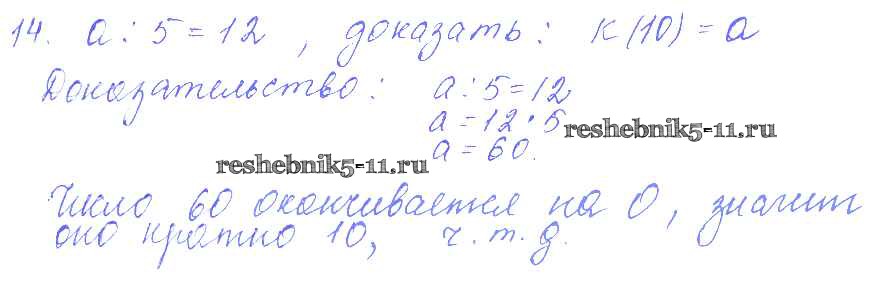 14. a : 5 = 12 , доказать : К(10) = a
Доказательство : a : 5 = 12
a = 12 · 5
reshebnik5-11.ru
a = 60.
reshebnik5-11.ru
Число 60 оканчивается на 0, значит
оно кратно 10, ч.т.д.